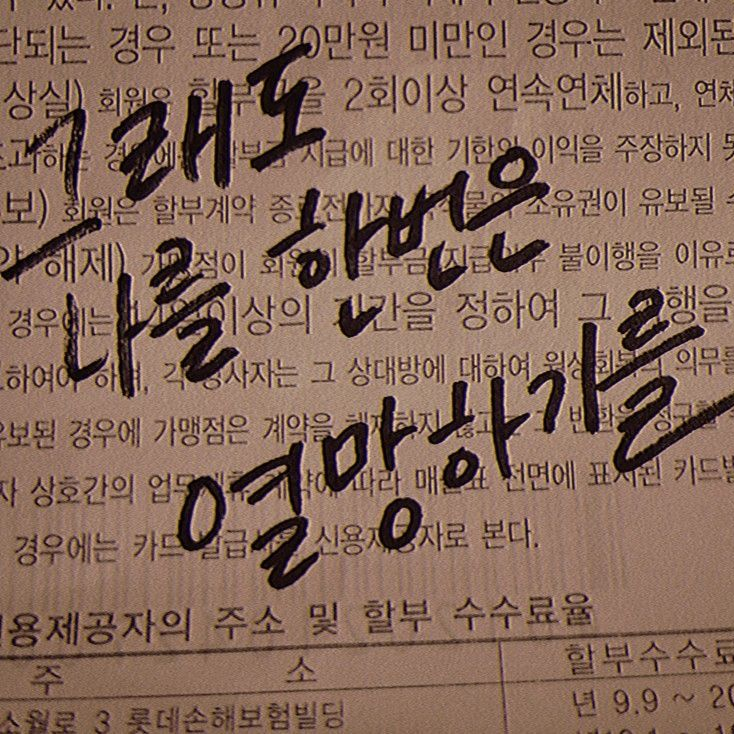 단되는 경우 또는 20만원 미만인 경우는 제외된
상실) 회원은 할부금을 2회이상 연속연체하고, 연체
초과하는 경우에는 할부금 지급에 대한 기한의 이익을 주장하지 못
보) 회원은 할부계약 소유권이 유보될 수
해제) 가맹점이 회원의 할부금 지급의무 불이행을 이유로
경우에는 14일이상의 기간을 정하여 그 이행을
하여야 하며, 각 당사자는 그 상대방에 대하여 원상회복의 의무를
유보된 경우에 가맹점은 계약을 해제하지 않고는 그 반환을 청구할 수
자 상호간의 업무제휴 계약에 따라 매출표 전면에 표시된 카드발
경우에는 카드 발급사를 신용제공자로 본다.
신용제공자의 주소 및 할부 수수료율
주 소 할부수수료
소월로 3 롯데손해보험빌딩 년 9.9 ~ 20
그래도
나를 한번은
열망하기를